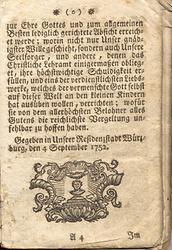 ( o )
zur Ehre Gottes und zum allgemeinen
Besten lediglich gerichtete Absicht erreicht
werde; worin nicht nur Unser gnä-
digster Wille geschieht, sondern auch Unsere
Seelsorger, und andere, denen das
Christliche Lehramt einigermaßen oblieg-
et, ihre höchstwichtige Schuldigkeit er-
füllen, und eins der verdienstlichsten Liebs-
werke, welches der vermenschte Gott selbst
auf dieser Welt an den kleinen Kindern
hat ausüben wollen, verrichten; wofür
sie von dem allerhöchsten Belohner alles
Gutens die reichlichste Vergeltung un-
fehlbar zu hoffen haben.
Gegeben in Unserer Residenzstadt Würz-
burg, den 4 September 1752.
A 4
Im